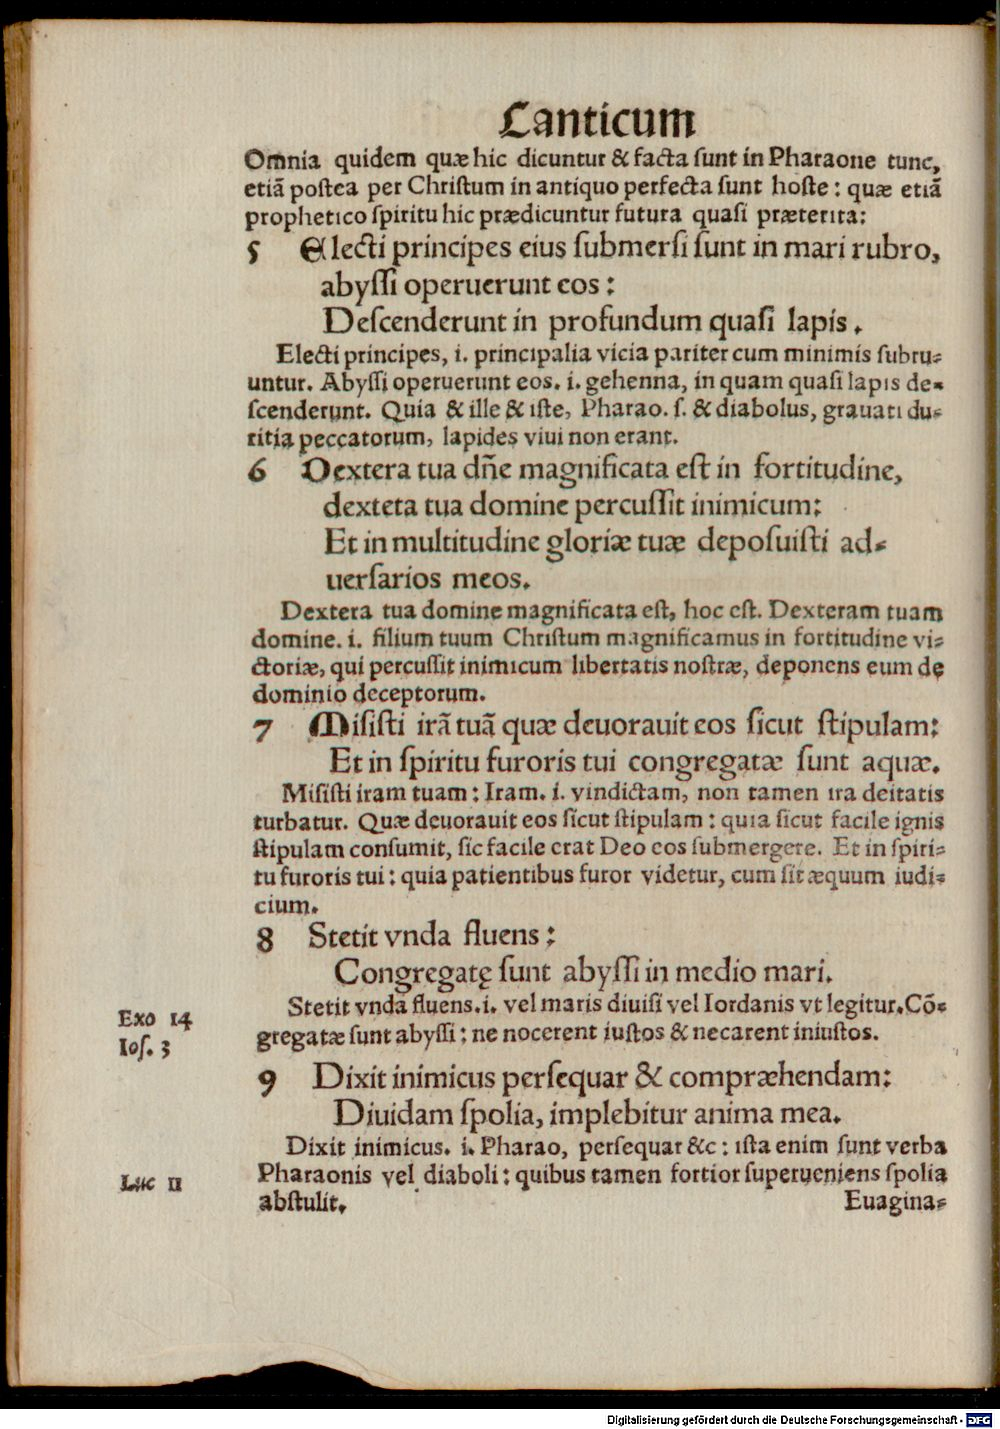 Canticum
Omnia quidem quæ hic dicuntur & facta sunt in Pharaone tunc,
etiã postea per Christum in antiquo perfecta sunt hoste: quæ etiã
prophetico spiritu hic prædicuntur futura quasi præterita:
5 Electi principes eius submersi sunt in mari rubro,
abyssi operuerunt eos:
Descenderunt in profundum quasi lapis.
Electi principes, i. principalia vicia pariter cum minimis subru-
untur. Abyssi operuerunt eos. i. gehenna, in quam quasi lapis de-
scenderunt. Quia & ille & iste, Pharao. s. & diabolus, grauati du-
ritia peccatorum, lapides viui non erant.
6 Dextera tua dñe magnificata est in fortitudine,
dexteta tua domine percussit inimicum:
Et in multitudine gloriæ tuæ deposuisti ad-
uersarios meos.
Dextera tua domine magnificata est, hoc est. Dexteram tuam
domine. i. filium tuum Christum magnificamus in fortitudine vi-
ctoriæ, qui percussit inimicum libertatis nostræ, deponens eum de
dominio deceptorum.
7 Misisti irã tuã quæ deuorauit eos sicut stipulam:
Et in spiritu furoris tui congregatæ sunt aquæ.
Misisti iram tuam: Iram. i. vindictam, non tamen ira deitatis
turbatur. Quæ deuorauit eos sicut stipulam: quia sicut facile ignis
stipulam consumit, sic facile erat Deo eos submergere. Et in spiri-
tu furoris tui: quia patientibus furor videtur, cum sit æquum iudi-
cium.
8 Stetit vnda fluens:
Congregatę sunt abyssi in medio mari.
Stetit vnda fluens. i. vel maris diuisi vel Iordanis vt legitur. Cõ-
Exo 14
gregatæ sunt abyssi: ne nocerent iustos & necarent iniustos.
Ios. 3
9 Dixit inimicus persequar & compræhendam:
Diuidam spolia, implebitur anima mea.
Dixit inimicus. i. Pharao, persequar &c: ista enim sunt verba
Pharaonis vel diaboli: quibus tamen fortior superueniens spolia
Luc 11
abstulit.
Euagina-
Digitalisierung gefördert durch die Deutsche Forschungsgemeinschaft - DFG